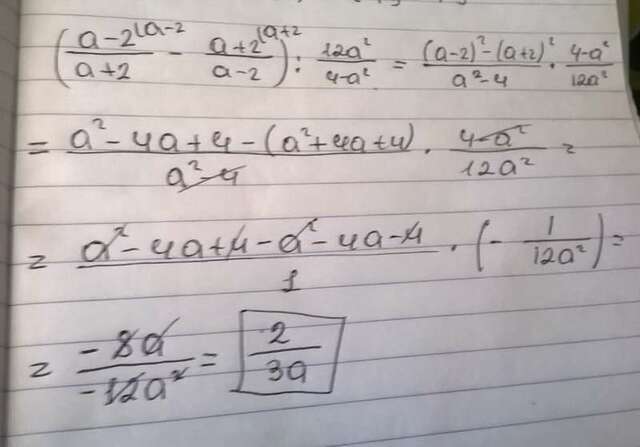 (a-2⁽ᵃ⁻²/a+2 - a+2⁽ᵃ⁺²/a-2) : 12a²/4-a² = (a-2)²-(a+2)²/a²-4 · 4-a²/12a²
= a²-4a+4-(a²+4a+4)/a²-4 · 4-a²/12a² =
= a²-4a+4-a²-4a-4/1 · (-1/12a²) =
= -8a/-12a² = 2/3a